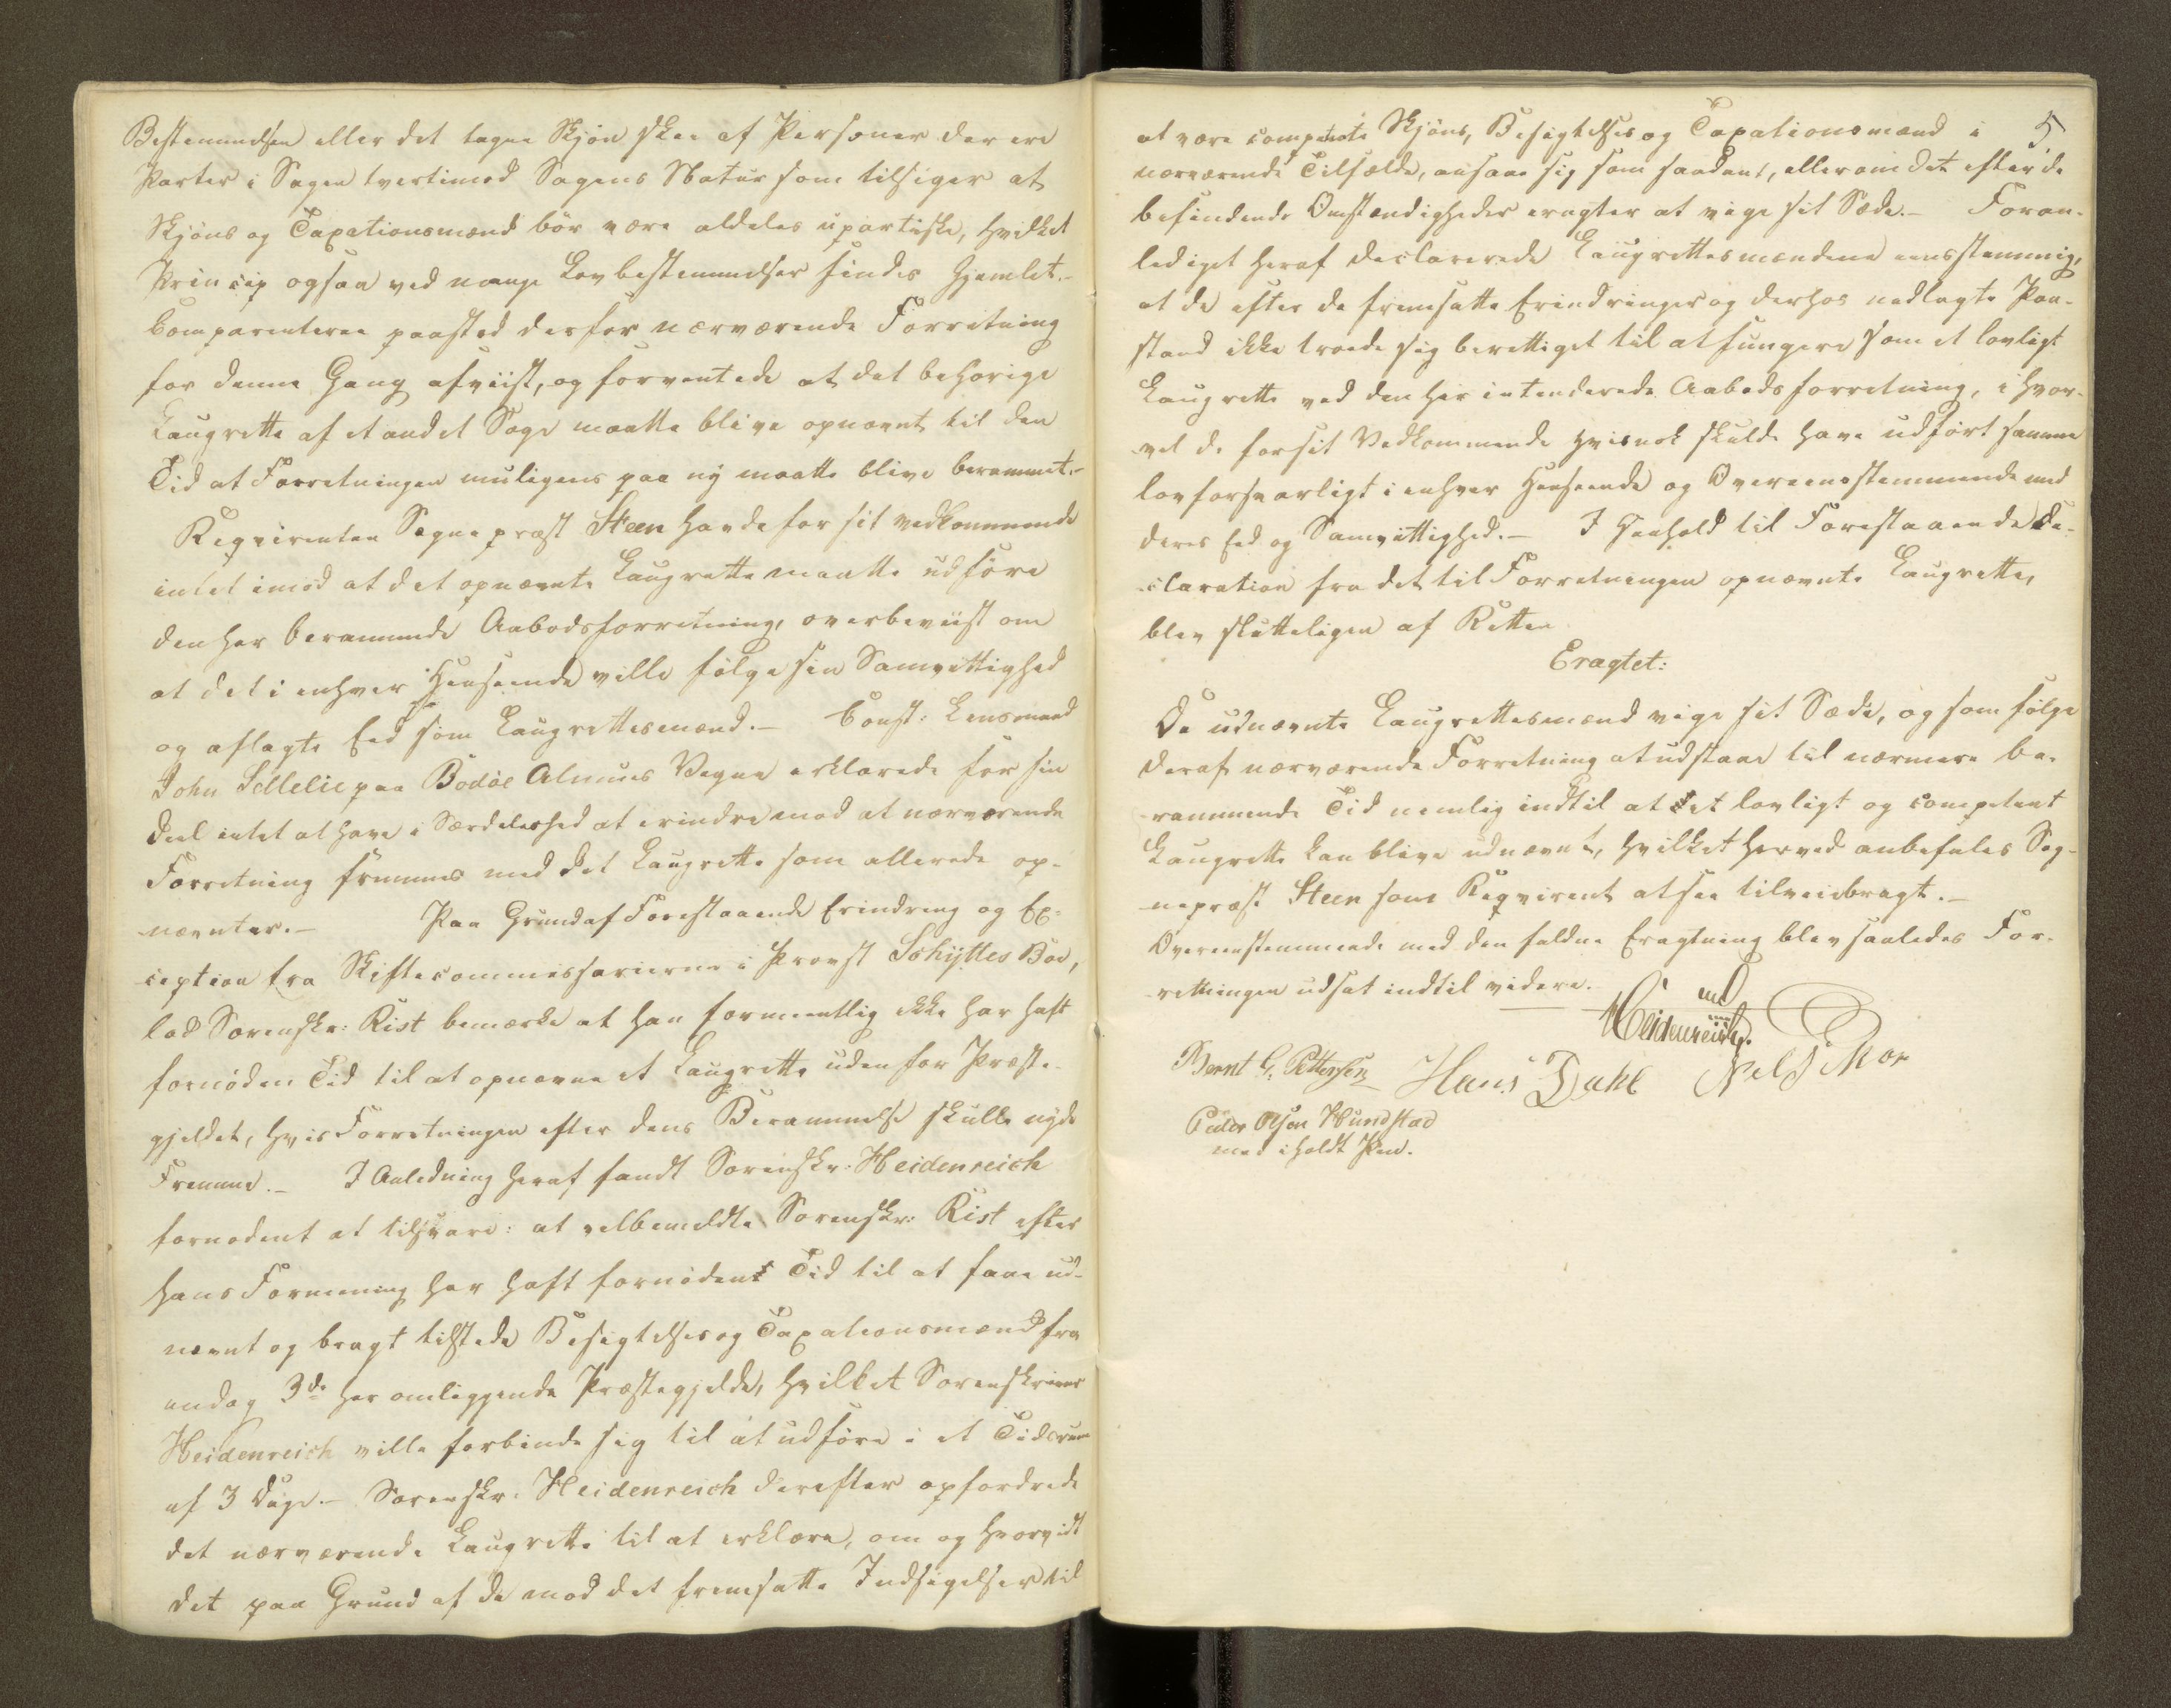 Bestemmelsen eller det tagne Skjøn skee af Personer der ere
Parter i Sagen tvertimod Sagens Natur som tilsiger at
Skjöns og Taxationsmænd bör være aldeles upartiske, hvilket
Princip ogsaa ved mange Lovbestemmelser findes hjemlet.-
Comparenterne paastod derfor nærværende Forretning
for denne Gang afviist, og forventede at det behørige
Laugrette af et andet Sogn maatte blive opnævnt til den
Tid at Forretningen muligens paa ny maatte blive berammet.-
Reqvirenten Sognepræst Steen havde for sit vedkommende
intet imod at det opnævnte Laugrette maatte udføre
den her berammede Aabodsforretning, overbeviist om
at det i enhver Henseende ville følge sin Samvittighed
og aflagte Eed som Laugrettesmænd.- Const: Lensmand
John Sellelie paa Bodöe Almues Vegne erklærede for sin
Deel intet at have i Særdeleshed at erindre mod at nærværende
Forretning fremmes med det Laugrette som allerede op-
nævnter.- Paa Grund af Forestaaende Erindring og Ex-
ception fra Skiftecommissarierne i Provst Schyttes Boe,
lod Sorenskr: Rist bemærke at han formeentlig ikke har haft
fornöden Tid til at opnævne et Laugrette uden for Præste-
gjeldet, hvis Forretningen efter dens Berammelse skulle nyde
Fremme.- I Anledning heraf fandt Sorenskr: Heidenreich
fornødent at tilsvare: at velbemeldte Sorenskr: Rist efter
hans Formening har haft fornödent Tid til at faae ud-
nævnt og bragt tilstede Besigtelses og Taxationsmænd fra
endog 3de her omliggende Præstegjelde, hvilket Sorenskriver
Heidenreich ville forbinde sig til at udføre i et Tidsrum
af 3 Dage.- Sorenskr. Heidenreich derefter opfordrede
det nærværende Laugrette til at erklære, om og hvorvidt
det paa Grund af de mod det fremsatte Indsigelser til
5
at være competente Skjöns, Besigtelses og Taxationsmænd i
nærværende Tilfælde, ansaae sig som saadant, eller om det efter de
befindende Omstændigheder eragter at vige sit Sæde.- Foran-
lediget heraf declarerede Laugrettesmændene eensstemmig,
at de efter de fremsatte Erindringer og derhos nedlagte Paa-
stand ikke troede sig berettiget til at fungere som et lovligt
Laugrette ved den her intenderede Aabodsforretning, i hvor-
vel de for sit Vedkommende hvisnok skulde have udført samme
lovforsvarligt i enhver Henseende og Overeensstemmende med
deres Eed og Samvittighed.- I Henhold til Forestaaende De-
claration fra det til Forretningen opnævnte Laugrette,
blev slutteligen af Retten
Eragtet:
De udnævnte Laugrettesmænd vige sit Sæde, og som følge
deraf nærværende Forretning at udstaae til nærmere be-
rammende Tid nemlig indtil at et lovligt og competent
Laugrette kan blive udnævnt, hvilket herved anbefales Sog-
nepræst Steen som Reqvirent at see tilveiebragt.-
Overeenstemmende med den faldne Eragtning blev saaledes For-
retningen udsat indtil videre.
Heidenreich.
Bernt G. Pettersen Hans Dahl Nels Mor
Peder Olsen Hundstad
med iholdt Pen.